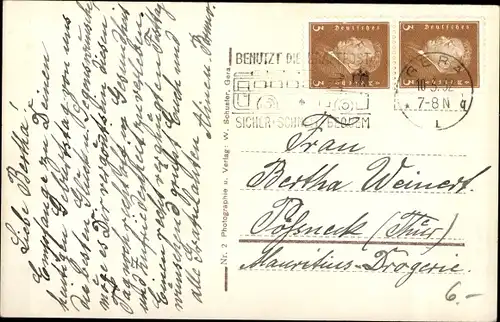 Liebe Bertha!
Empfange zu Deinem
heutigen Geburtstag von uns
die besten Glück- u. Segenswünsche
möge es Dir vergönnt sein diesen
Tag noch oft in Gesundheit
und Zufriedenheit zu verleben.
Einen recht vergnügten Festtag
wünschend grüßt Euch
alle Eschelbachs
Nr. 2 Photographie u. Verlag: W. Schuster, Gera
BENUTZT DIE
SICHER-SCHNELL-BEQUEM
3 Deutsches 3
3 Deutsches 3
GERA
10.3.32
7-8 N
Frau
Bertha Weinert.
Pößneck (Thür)
Mauritius-Drogerie.
6.-